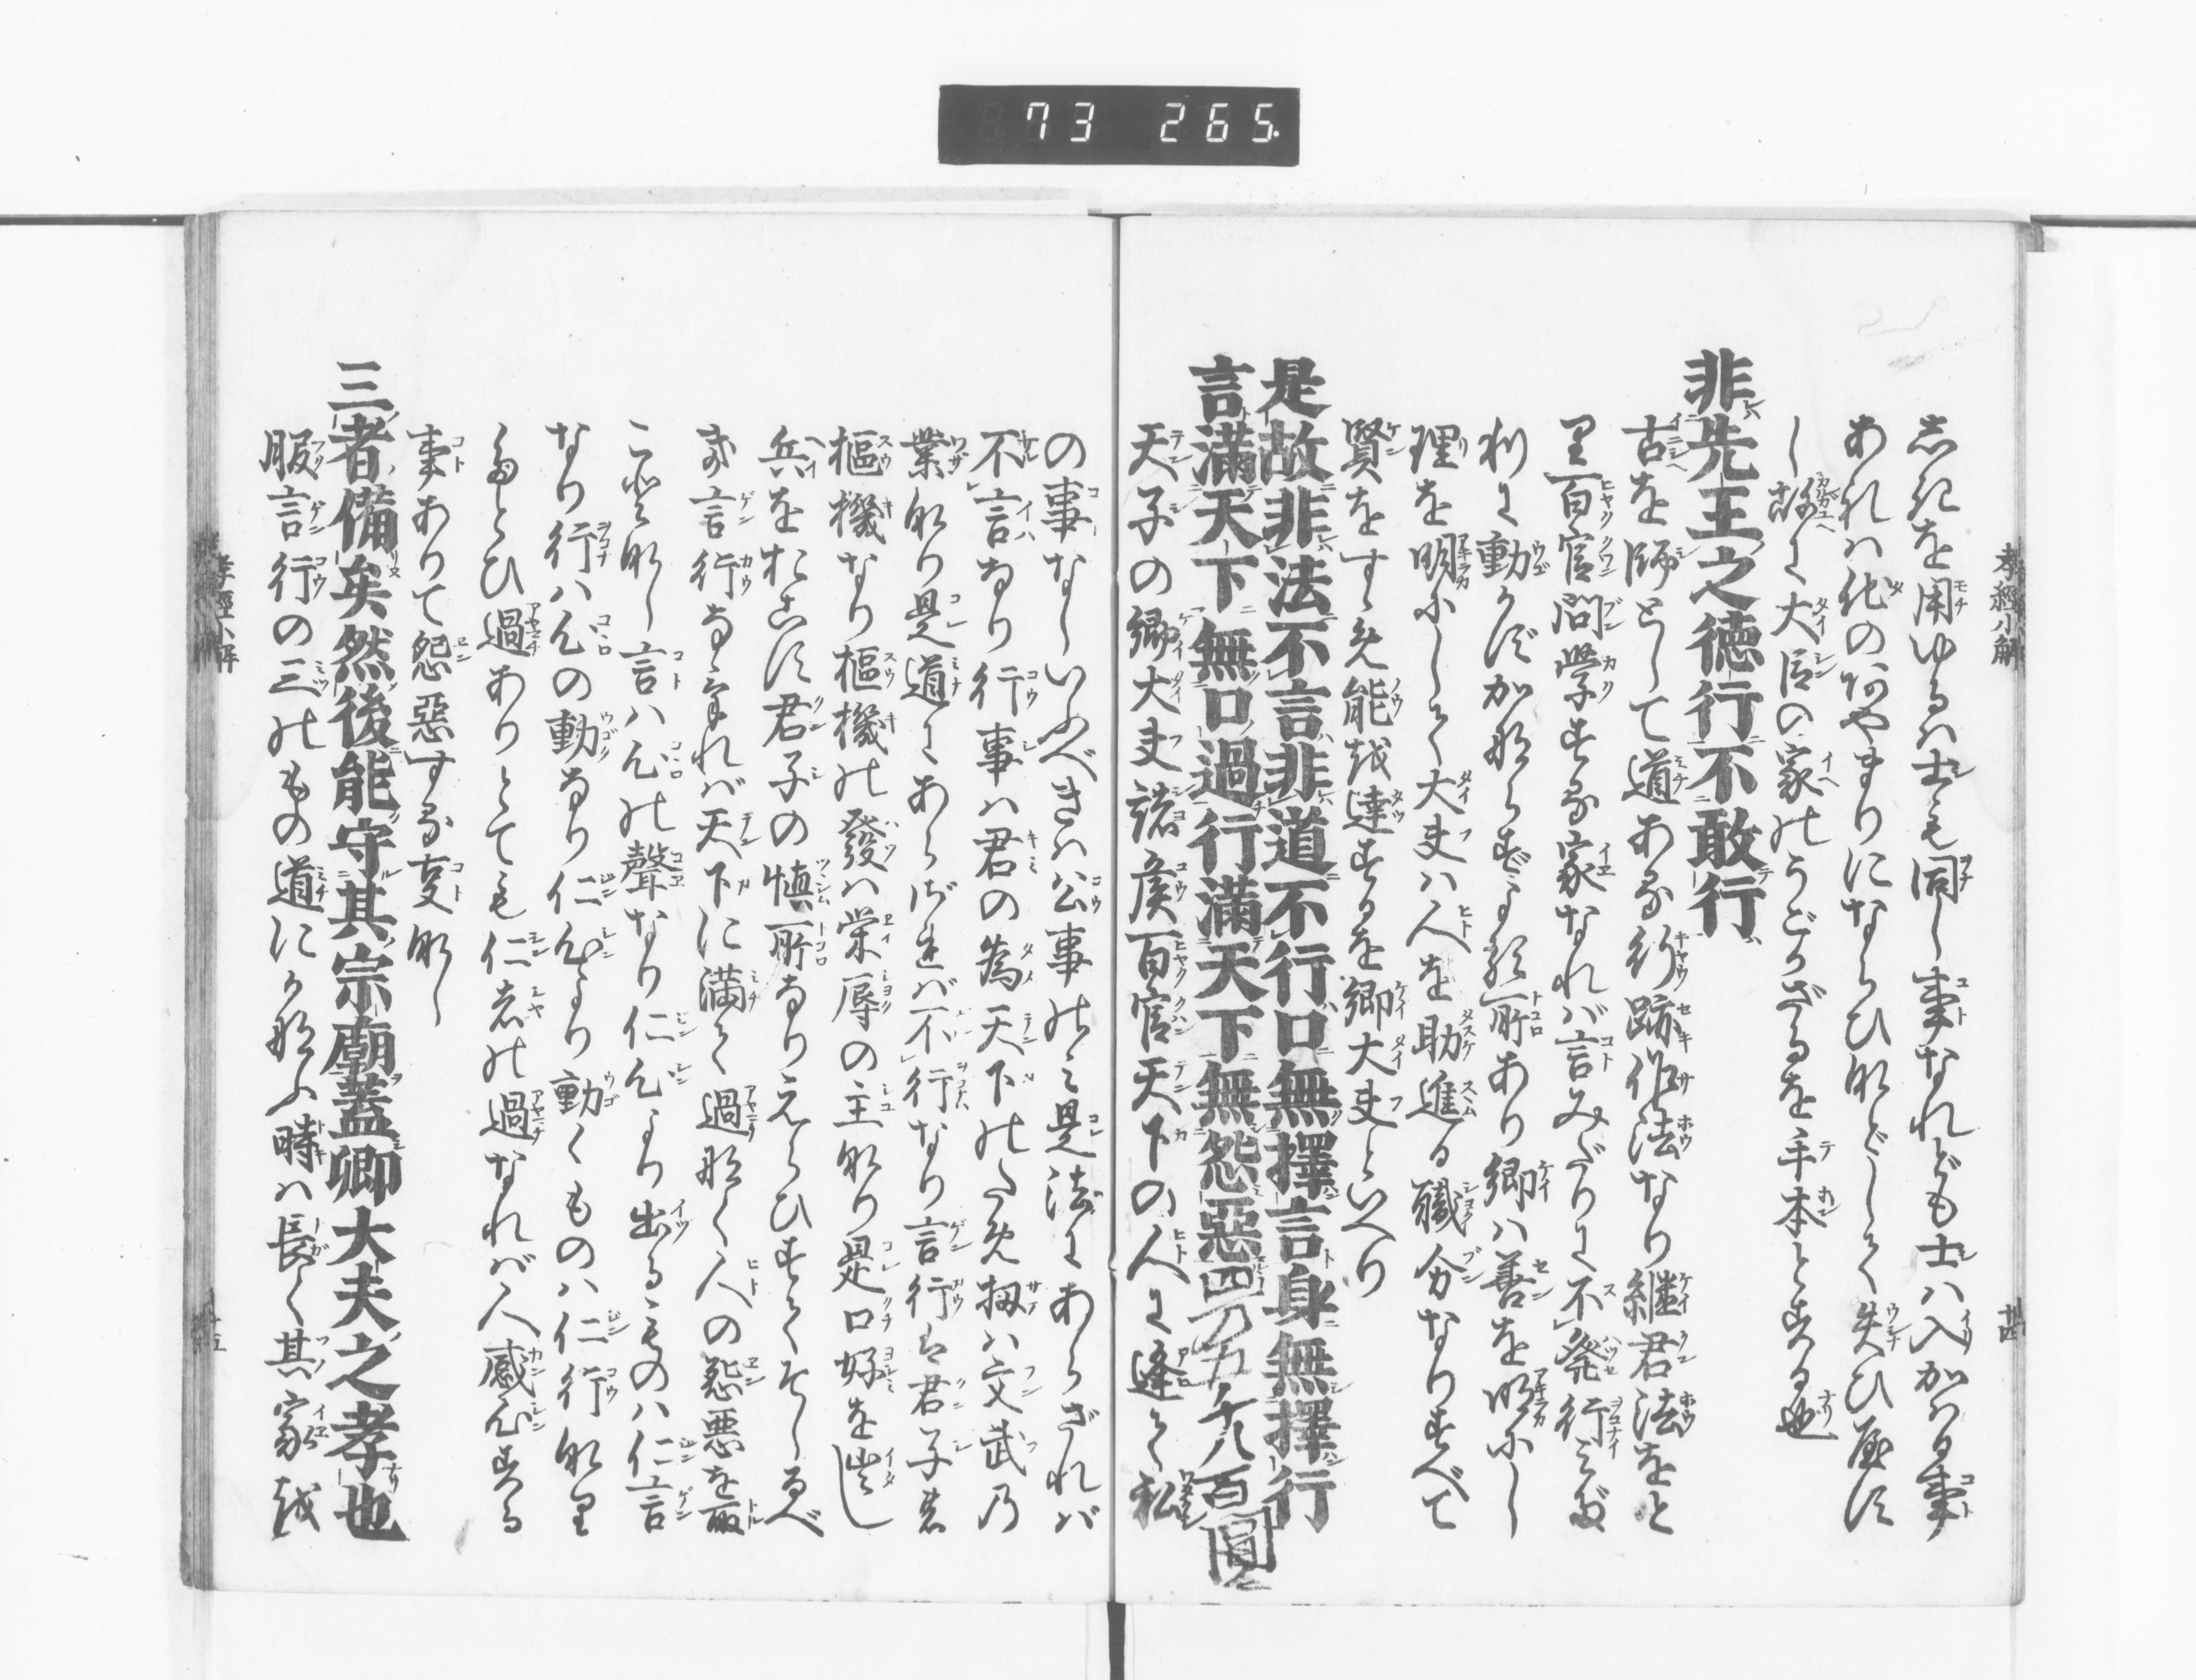 73 265.
孝經小解
志紀を用ゆるハ士も同し事なれども士ハ入かハる事
あれハ他のあやまりにならひ形どして失ひ
し故に大臣の家のうごかざるを手本とする也
非先王之徳行不敢行
古を師として道ある行跡作法なり継君法をと
里百官問學する家なれば言みだりに不發行
を明にして大夫ハ人を助進る職分なりすべて
賢をすゝめ能を達するを卿大夫といへり
是故非法不言非道不行口無擇言身無擇行
言滿天下無口過行滿天下無怨惡
四万五千八百圓
天子の卿大夫諸侯百官天下の人に逢て私
の事なしいふべきハ公事のミ是法にあらざれバ
不言なり行事ハ君の為天下のため扨ハ文武乃
業なり是道にあらざれバ不行なり言行は君子の
樞機なり樞機の發ハ栄辱の主なり是口好を出し
兵をおこす君子の慎所なりえらひすてそしるべ
き言行なけれバ天下に滿て過なく人の怨悪を取
ことなし言ハ心の聲なり仁心より出るものハ仁言
なり行ハ心の動なり仁心より動くものハ仁行なり
たとひ過ありとても仁者の過なれバ人感心する
事ありて怨惡する事なし
三者備矣然後能守其宗廟蓋卿大夫之孝也
服言行の三のもの道にかなふ時ハ長く其家を
孝經小解